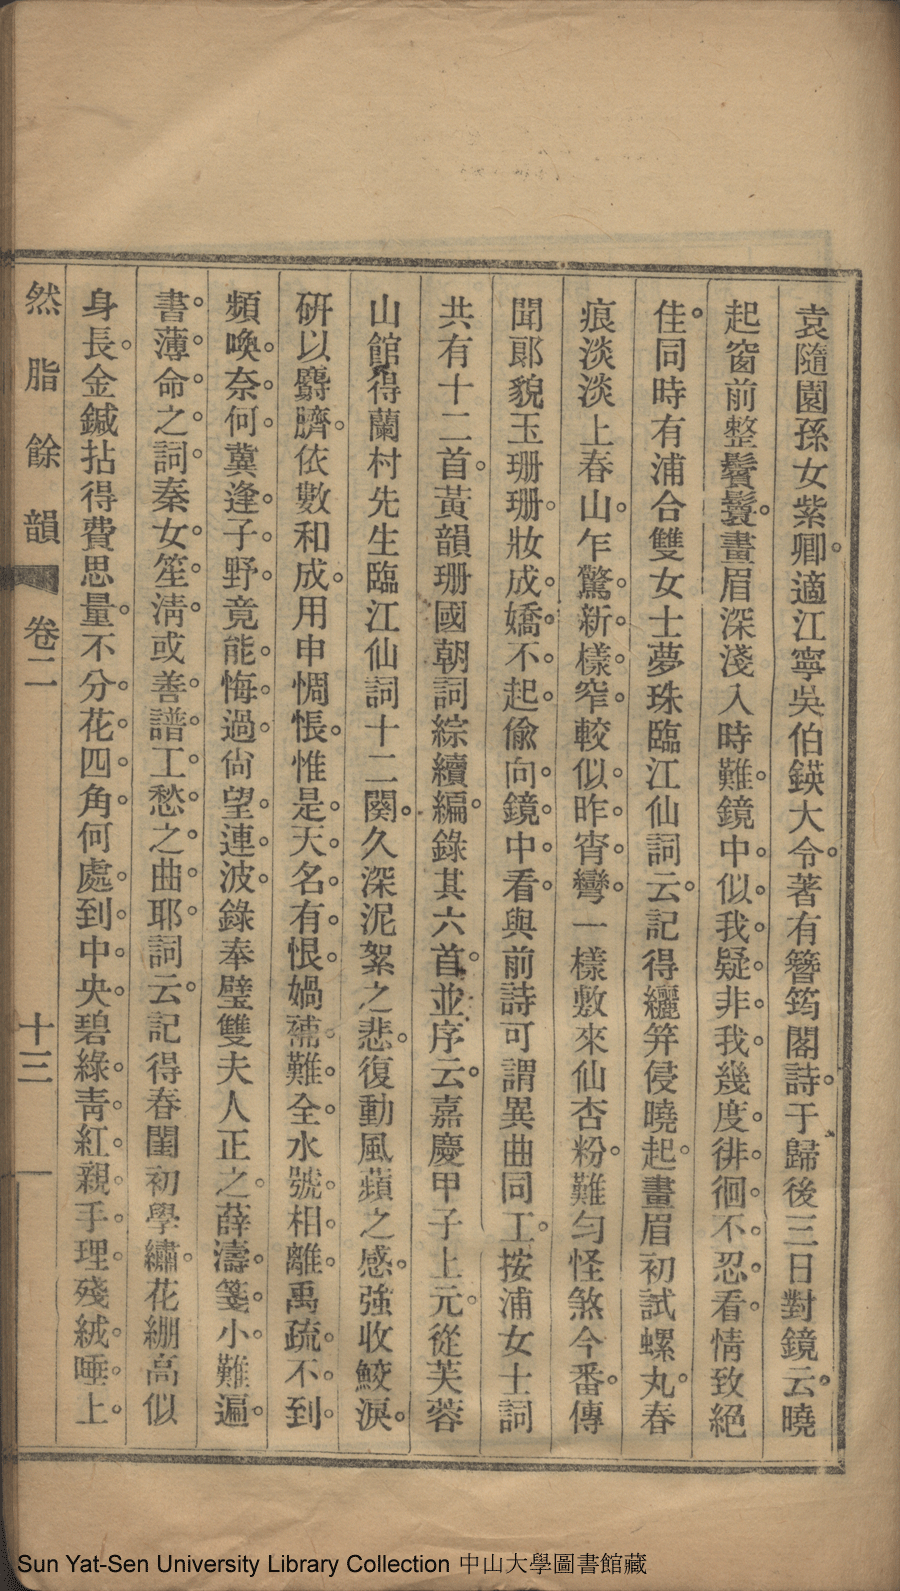 袁隨園孫女紫卿。適江寧吳伯鍈大令。著有簪筠閣詩。于歸後三日對鏡云。曉
起窗前整鬢鬟。畫眉深淺入時難。鏡中。似。我。疑。非。我。幾。度。徘。徊。不。忍。看。情致絕
佳。同時有浦合雙女士夢珠臨江仙詞云。記得纚笄侵曉起。畫眉初試螺丸。春
痕淡淡上春山。乍驚。新。樣。窄。較似。昨。宵。彎。一樣敷來仙杏粉。難勻怪煞今番。傳
聞郎貌玉珊珊。妝成。嬌。不。起。偸向。鏡。中。看。與前詩可謂異曲同工。按浦女士詞
共有十二首。黃韻珊國朝詞綜續編。錄其六首。並序云。嘉慶甲子上元。從芙蓉
山館得蘭村先生臨江仙詞十二闋。久深泥絮之悲。復動風蘋之感。強收鮫淚。
硏以麝臍。依數和成。用申惆悵。惟是。天。名。有。恨。媧補。難。全。水號。相。離。禹疏。不。到。
頻喚。奈。何。冀逢。子。野。竟能。悔。過。尙望。連。波。錄奉璧雙夫人正之。薛濤。箋。小。難遍。
書。薄。命。之。詞。秦女。笙。淸。或善。譜。工。愁。之。曲。耶。詞云。記得春閨初學繡。花綳高似
身長。金鍼拈得費思量。不分。花。四。角。何處。到。中。央。碧綠。靑。紅。親。手。理。殘絨。唾。上。
然脂餘韻 卷二 十三
Sun Yat-Sen University Library Collection 中山大學圖書館藏